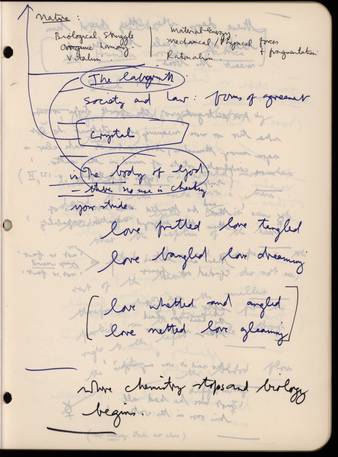 Nature:
Biological Struggle
Organic harmony
Vitalism
Material-energy
mechanical / Physical forces
+ fragmentation
Rationalism
The labyrinth
society and law: forms of agreement
Crystal
The body of God
– there no use in checking
your stride.
love love tangled
love bangled love dreaming
love whetted and angled
love netted love gleaming
where chemistry stops and biology
begins.